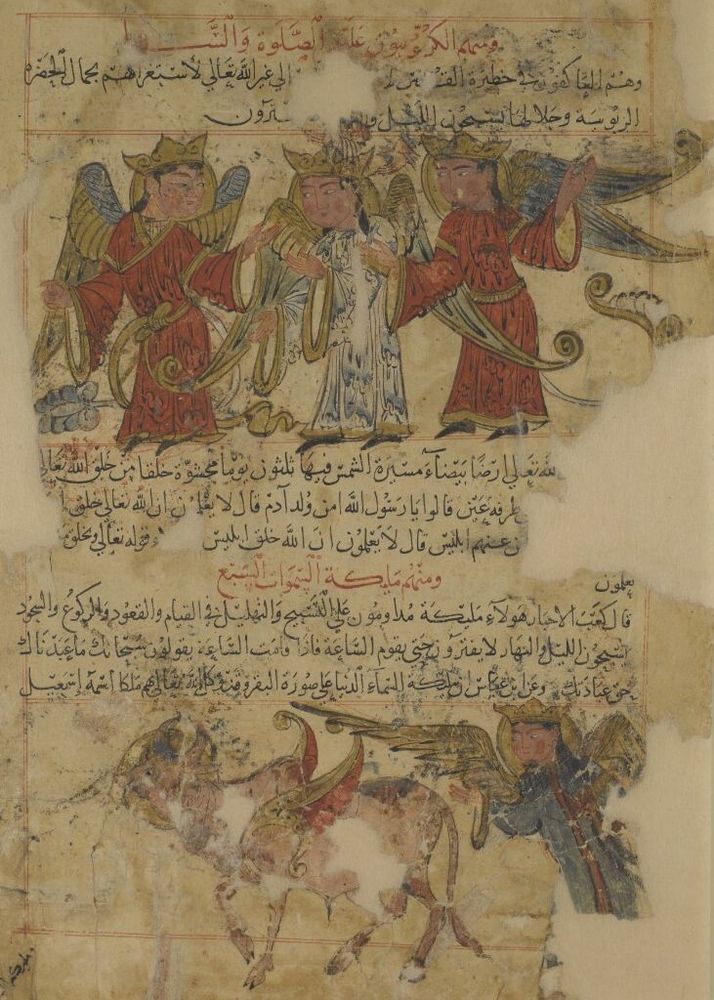 ومنهم الكروبيون عليهم الصلوة والسـ
وهم العاكفون في حظيرة القدس الى غير الله تعالى لاستغراقهم بجمال الحضرة
الربوبية وجلالها يسبحون الليل و يفترون
لله تعالى ارضا بيضاء مسيرة الشمس فيها ثلثون يوما محشوة خلقا من خلق الله تعالى
طرفة عين قالوا يا رسول الله امن ولد آدم قال لا يعلمون ان الله تعالى خلق ا
ن عنهم ابليس قال لا يعلمون ان الله خلق ابليس قوله تعالى ويخلق
يعلمون
ومنهم ملائكة السموات السبع
قال كعب الاحبار هولاء مليكة مداومون على التسبيح والتهليل في القيام والقعود والركوع والسجود
يسبحون الليل والنهار لا يفترون حتى يقوم الساعة فاذا قامت الساعة يقولون سبحانك ما عبدناك
حق عبادتك وعن ابن عباس ان ملئكة السماء الدنيا على صورة البقر وقد وكل الله تعالى بهم ملكا اسمه اسمعيل